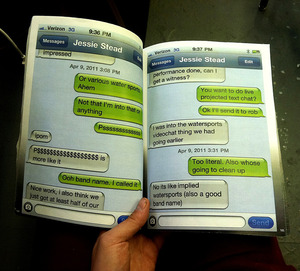 Verizon 3G 9:36 PM
Messages Jessie Stead
impressed
Apr 9, 2011 3:05 PM
Or various water sports.
Ahem
Not that I'm into that or
anything
Ipom
is
more like it
Ooh band name. I called it
Nice work, i also think we
just got at least half of our
Verizon 3G 9:37 PM
Messages Jessie Stead Edit
performance done, can I
get a witness?
You want to do live
projected text chat?
Ok I'll send it to rob
I was into the watersports
videochat thing we had
going earlier
Apr 9, 2011 3:31 PM
Too literal. Also whose
going to clean up
No its like implied
watersports (also a good
band name)
Send